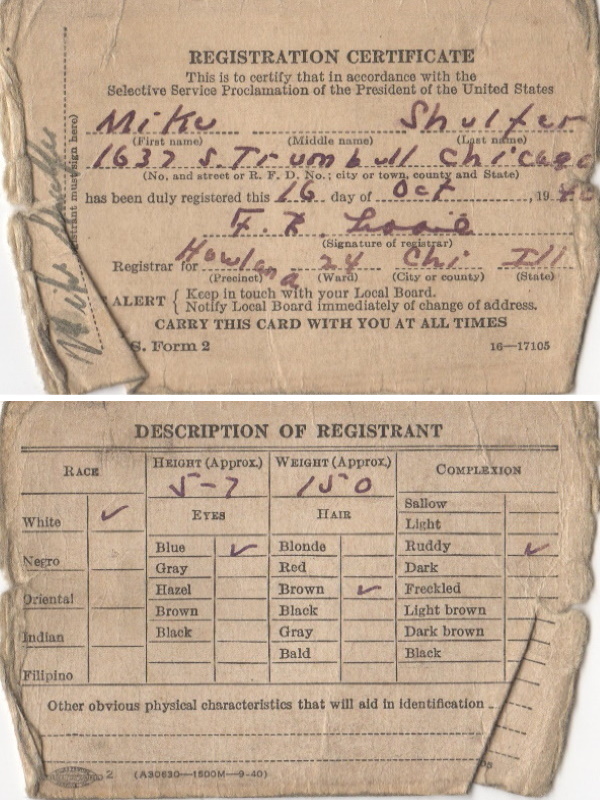 REGISTRATION CERTIFICATE
This is to certify that in accordance with the
Selective Service Proclamation of the President of the United States
Mike Shulfer
(First name) (Middle name) (Last name)
1637 S. Trumbull Chicago
(No. and street or R. F. D. No.; city or town, county and State)
has been duly registered this 16 day of Oct, 1940
F. X.
(Signature of registrar)
Registrar for Howland 24 Chi Ill
(Precinct) (Ward) (City or county) (State)
ALERT { Keep in touch with your Local Board.
Notify Local Board immediately of change of address.
CARRY THIS CARD WITH YOU AT ALL TIMES
S. Form 2 16—17105
must sign here)
Mike
DESCRIPTION OF REGISTRANT
RACE HEIGHT (Approx.) WEIGHT (Approx.) COMPLEXION
5-7 150
EYES HAIR
Sallow
White ✓ Light
Blue ✓ Blonde Ruddy ✓
Negro Gray Red Dark
Oriental Hazel Brown ✓ Freckled
Brown Black Light brown
Indian Black Gray Dark brown
Bald Black
Filipino
Other obvious physical characteristics that will aid in identification
2 (A30630—1500M—9-40)